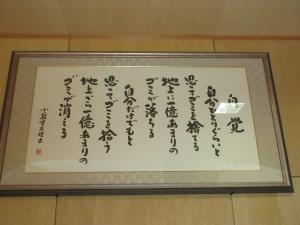 自覚
自分ひとりぐらいと
思ってゴミを捨てる
地上に一億あまりの
ゴミが落ちる
自分だけでもと
思ってゴミを拾う
地上から一億あまりの
ゴミが消える